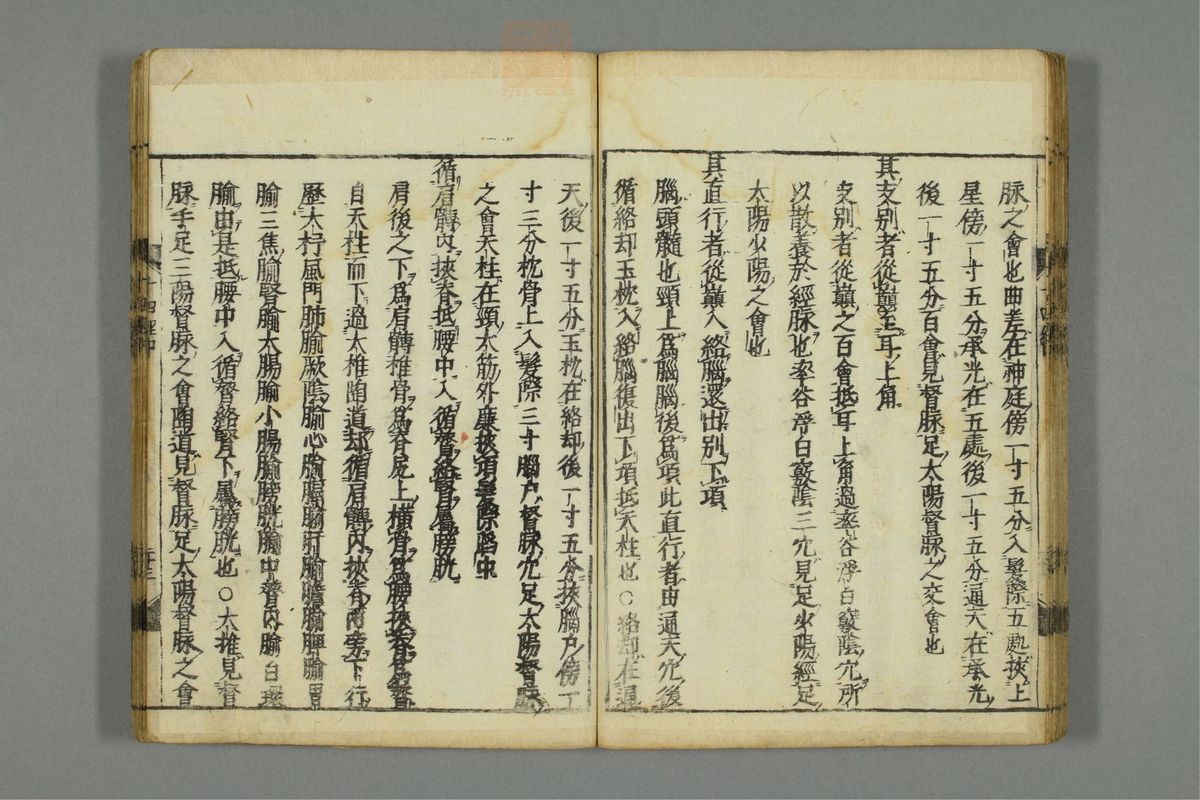 脉之會也曲差在神庭傍一寸五分入髮際五處挾上
星傍一寸五分承光在五處後一寸五分通天在承光
後一寸五分百會見督脉足太陽督脉之交會也
其支別者從巔至耳上角
支別者從巔之百會抵耳上角過率谷浮白竅陰穴所
以散養於經脉也率谷浮白竅陰三穴見足少陽經足
太陽少陽之會也
其直行者從巔入絡腦還出別下項
腦頭髓也頸上爲腦腦後爲項此直行者由通天穴後
循絡却玉枕入絡腦復出下項抵天柱也○絡却在通
天後一寸五分玉枕在絡却後一寸五分挾腦戶傍一
寸三分枕骨上入髮際三寸腦戶督脉穴足太陽督脉
之會天柱在頸大筋外廉挾項髮際陷中
循肩髆內挾脊抵腰中入循膂絡腎屬膀胱
肩後之下爲肩髆椎骨爲脊尻上橫骨爲腰挾脊爲膂
自天柱而下過大椎陶道却循肩髆內挾脊兩旁下行
歷大杼風門肺腧厥陰腧心腧膈腧肝腧膽腧脾腧胃
腧三焦腧腎腧大腸腧小腸腧膀胱腧中膂內腧白環
腧由是抵腰中入循膂絡腎下屬膀胱也○大推見督
脉手足三陽督脉之會陶道見督脉足太陽督脉之會
十四經中